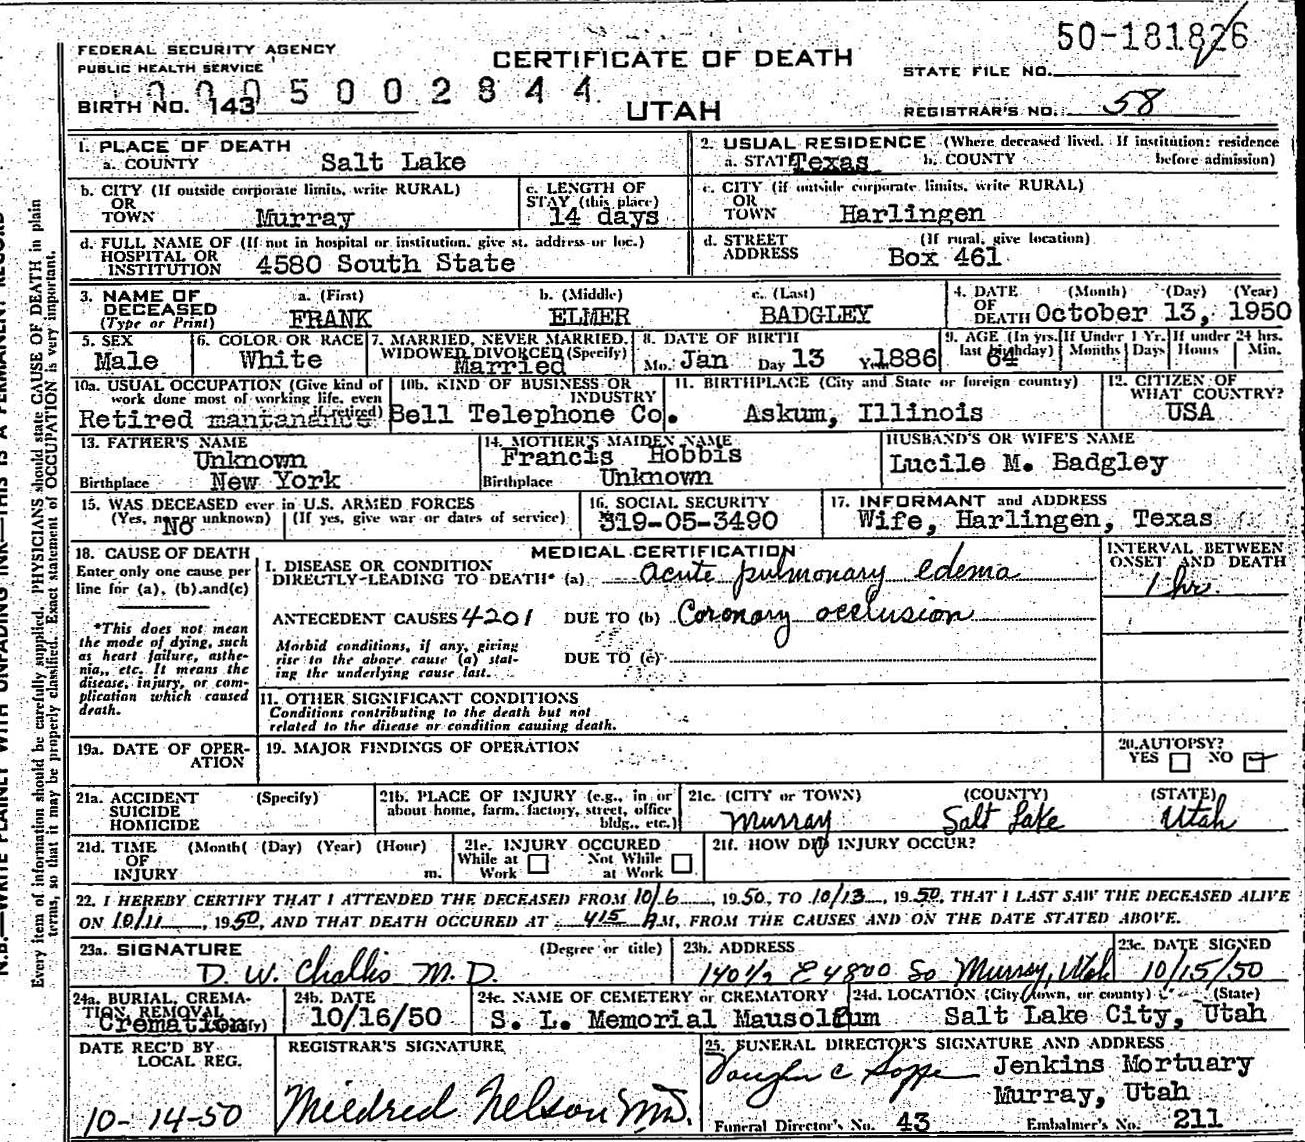 50-181826
FEDERAL SECURITY AGENCY
PUBLIC HEALTH SERVICE
CERTIFICATE OF DEATH
STATE FILE NO.
0005002844
BIRTH NO. 143
UTAH
REGISTRAR'S NO. 58
1. PLACE OF DEATH
a. COUNTY Salt Lake
2. USUAL RESIDENCE (Where deceased lived. If institution: residence before admission)
a. STATE Texas b. COUNTY
b. CITY (If outside corporate limits, write RURAL)
OR
TOWN Murray
c. LENGTH OF
STAY (this place)
14 days
c. CITY (if outside corporate limits, write RURAL)
OR
TOWN Harlingen
d. FULL NAME OF (If not in hospital or institution, give st. address or loc.)
HOSPITAL OR
INSTITUTION 4580 South State
d. STREET (If rural, give location)
ADDRESS Box 461
3. NAME OF
DECEASED
(Type or Print)
a. (First) b. (Middle) c. (Last)
FRANK ELMER BADGLEY
4. DATE (Month) (Day) (Year)
OF
DEATH October 13, 1950
5. SEX
Male
6. COLOR OR RACE
White
7. MARRIED, NEVER MARRIED,
WIDOWED DIVORCED (Specify)
Married
8. DATE OF BIRTH
Mo. Jan Day 13 Yr. 1886
9. AGE (In yrs. last birthday) 64
If Under 1 Yr. Months Days
If under 24 hrs. Hours Min.
10a. USUAL OCCUPATION (Give kind of
work done most of working life, even
if retired)
Retired mantanance
10b. KIND OF BUSINESS OR
INDUSTRY
Bell Telephone Co.
11. BIRTHPLACE (City and State or foreign country)
Askum, Illinois
12. CITIZEN OF
WHAT COUNTRY?
USA
13. FATHER'S NAME
Unknown
Birthplace New York
14. MOTHER'S MAIDEN NAME
Francis Hobbis
Birthplace Unknown
HUSBAND'S OR WIFE'S NAME
Lucile M. Badgley
15. WAS DECEASED ever in U.S. ARMED FORCES
(Yes, no or unknown) (If yes, give war or dates of service)
No
16. SOCIAL SECURITY
319-05-3490
17. INFORMANT and ADDRESS
Wife, Harlingen, Texas
18. CAUSE OF DEATH
Enter only one cause per
line for (a), (b).and(c)
*This does not mean
the mode of dying, such
as heart failure, asthe-
nia, etc. It means the
disease, injury, or com-
plication which caused
death.
MEDICAL CERTIFICATION
I. DISEASE OR CONDITION
DIRECTLY LEADING TO DEATH* (a) acute pulmonary edema
INTERVAL BETWEEN
ONSET AND DEATH
1 hr.
ANTECEDENT CAUSES 4201 DUE TO (b) Coronary occlusion
Morbid conditions, if any, giving
rise to the above cause (a) stat-
ing the underlying cause last.
DUE TO (c)
11. OTHER SIGNIFICANT CONDITIONS
Conditions contributing to the death but not
related to the disease or condition causing death.
19a. DATE OF OPER-
ATION
19. MAJOR FINDINGS OF OPERATION
20. AUTOPSY?
YES NO
21a. ACCIDENT (Specify)
SUICIDE
HOMICIDE
21b. PLACE OF INJURY (e.g., in or
about home, farm, factory, street, office
bldg., etc.)
21c. (CITY or TOWN) (COUNTY) (STATE)
Murray Salt Lake Utah
21d. TIME (Month( (Day) (Year) (Hour)
OF
INJURY m.
21e. INJURY OCCURED
While at Work Not While at Work
21f. HOW DID INJURY OCCUR?
22. I HEREBY CERTIFY THAT I ATTENDED THE DECEASED FROM 10/6, 1950, TO 10/13, 1950, THAT I LAST SAW THE DECEASED ALIVE
ON 10/11, 1950, AND THAT DEATH OCCURED AT 415 AM, FROM THE CAUSES AND ON THE DATE STATED ABOVE.
23a. SIGNATURE (Degree or title)
D. W. Challis M. D.
23b. ADDRESS
140 1/2 E 4800 So Murray, Utah
23c. DATE SIGNED
10/15/50
24a. BURIAL, CREMA-
TION, REMOVAL
(Specify)
Cremation
24b. DATE
10/16/50
24c. NAME OF CEMETERY or CREMATORY
S. L. Memorial Mausoleum
24d. LOCATION (City, town, or county) (State)
Salt Lake City, Utah
DATE REC'D BY
LOCAL REG.
10-14-50
REGISTRAR'S SIGNATURE
Mildred Nelson MD.
25. FUNERAL DIRECTOR'S SIGNATURE AND ADDRESS
Vaughn C Jenkins Mortuary
Murray, Utah
Funeral Director's No. 43 Embalmer's No. 211
N.B.—WRITE PLAINLY WITH UNFADING INK—THIS IS A PERMANENT RECORD
Every item of information should be carefully supplied. PHYSICIANS should state CAUSE OF DEATH in plain
terms, so that it may be properly classified. Exact statement of OCCUPATION is very important.